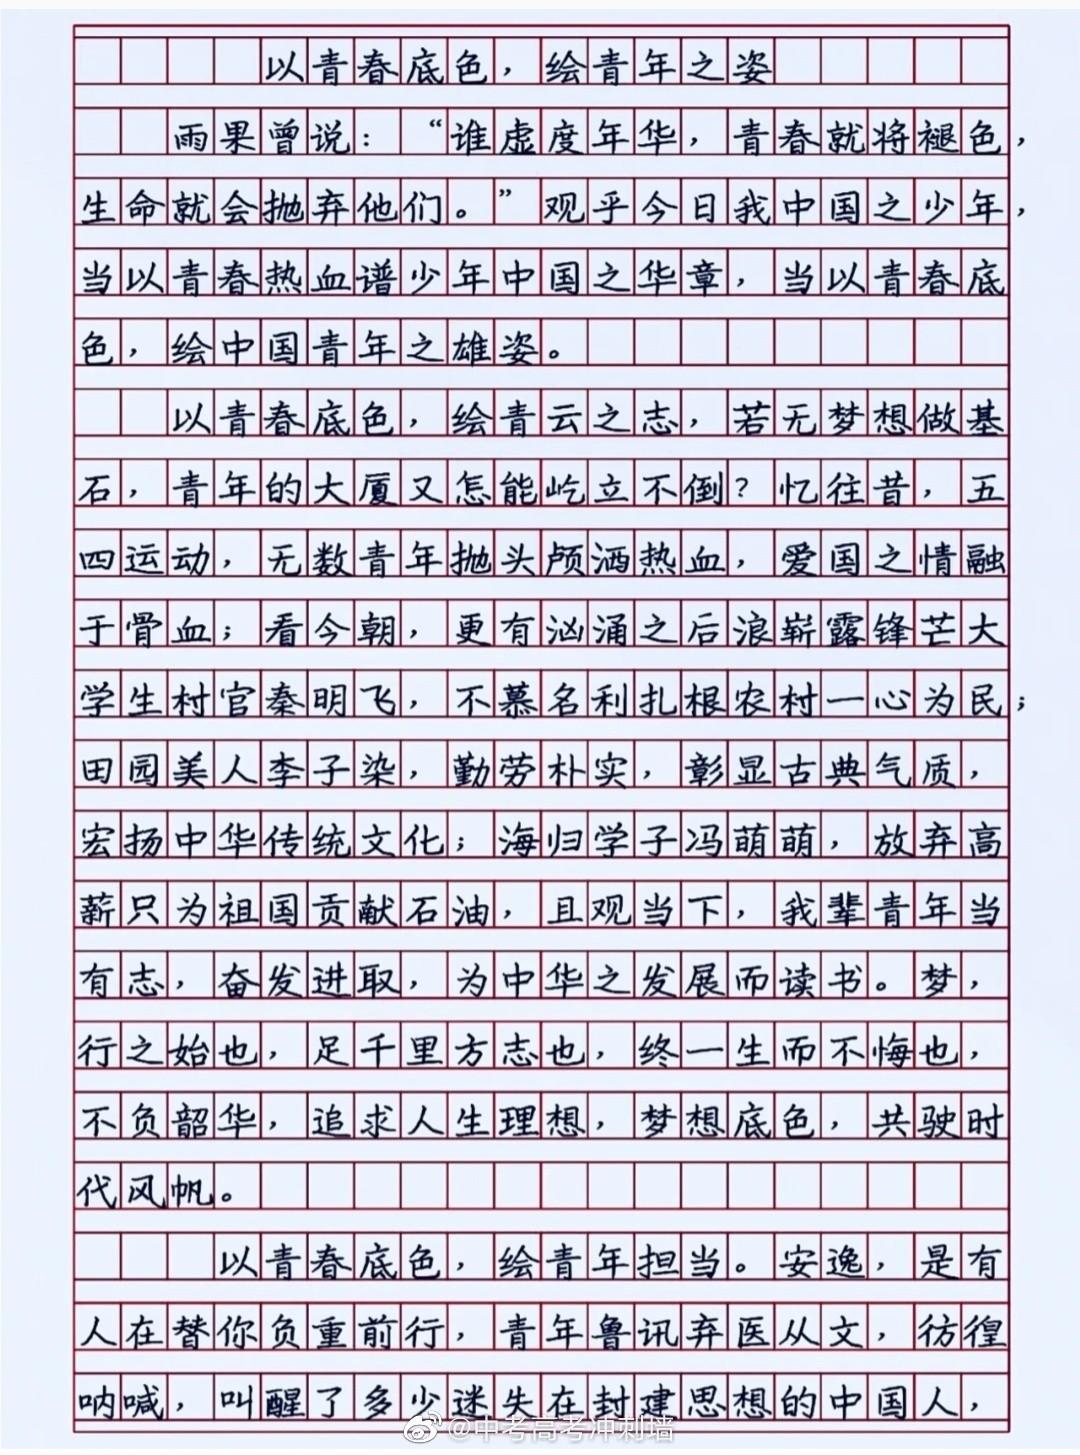 以青春底色，绘青年之姿
雨果曾说：“谁虚度年华，青春就将褪色，
生命就会抛弃他们。”观乎今日我中国之少年，
当以青春热血谱少年中国之华章，当以青春底
色，绘中国青年之雄姿。
以青春底色，绘青云之志，若无梦想做基
石，青年的大厦又怎能屹立不倒？忆往昔，五
四运动，无数青年抛头颅洒热血，爱国之情融
于骨血；看今朝，更有汹涌之后浪崭露锋芒大
学生村官秦明飞，不慕名利扎根农村一心为民；
田园美人李子染，勤劳朴实，彰显古典气质，
宏扬中华传统文化；海归学子冯萌萌，放弃高
薪只为祖国贡献石油，且观当下，我辈青年当
有志，奋发进取，为中华之发展而读书。梦，
行之始也，足千里方志也，终一生而不悔也，
不负韶华，追求人生理想，梦想底色，共驶时
代风帆。
以青春底色，绘青年担当。安逸，是有
人在替你负重前行，青年鲁讯弃医从文，彷徨
呐喊，叫醒了多少迷失在封建思想的中国人，
@中考高考冲刺墙